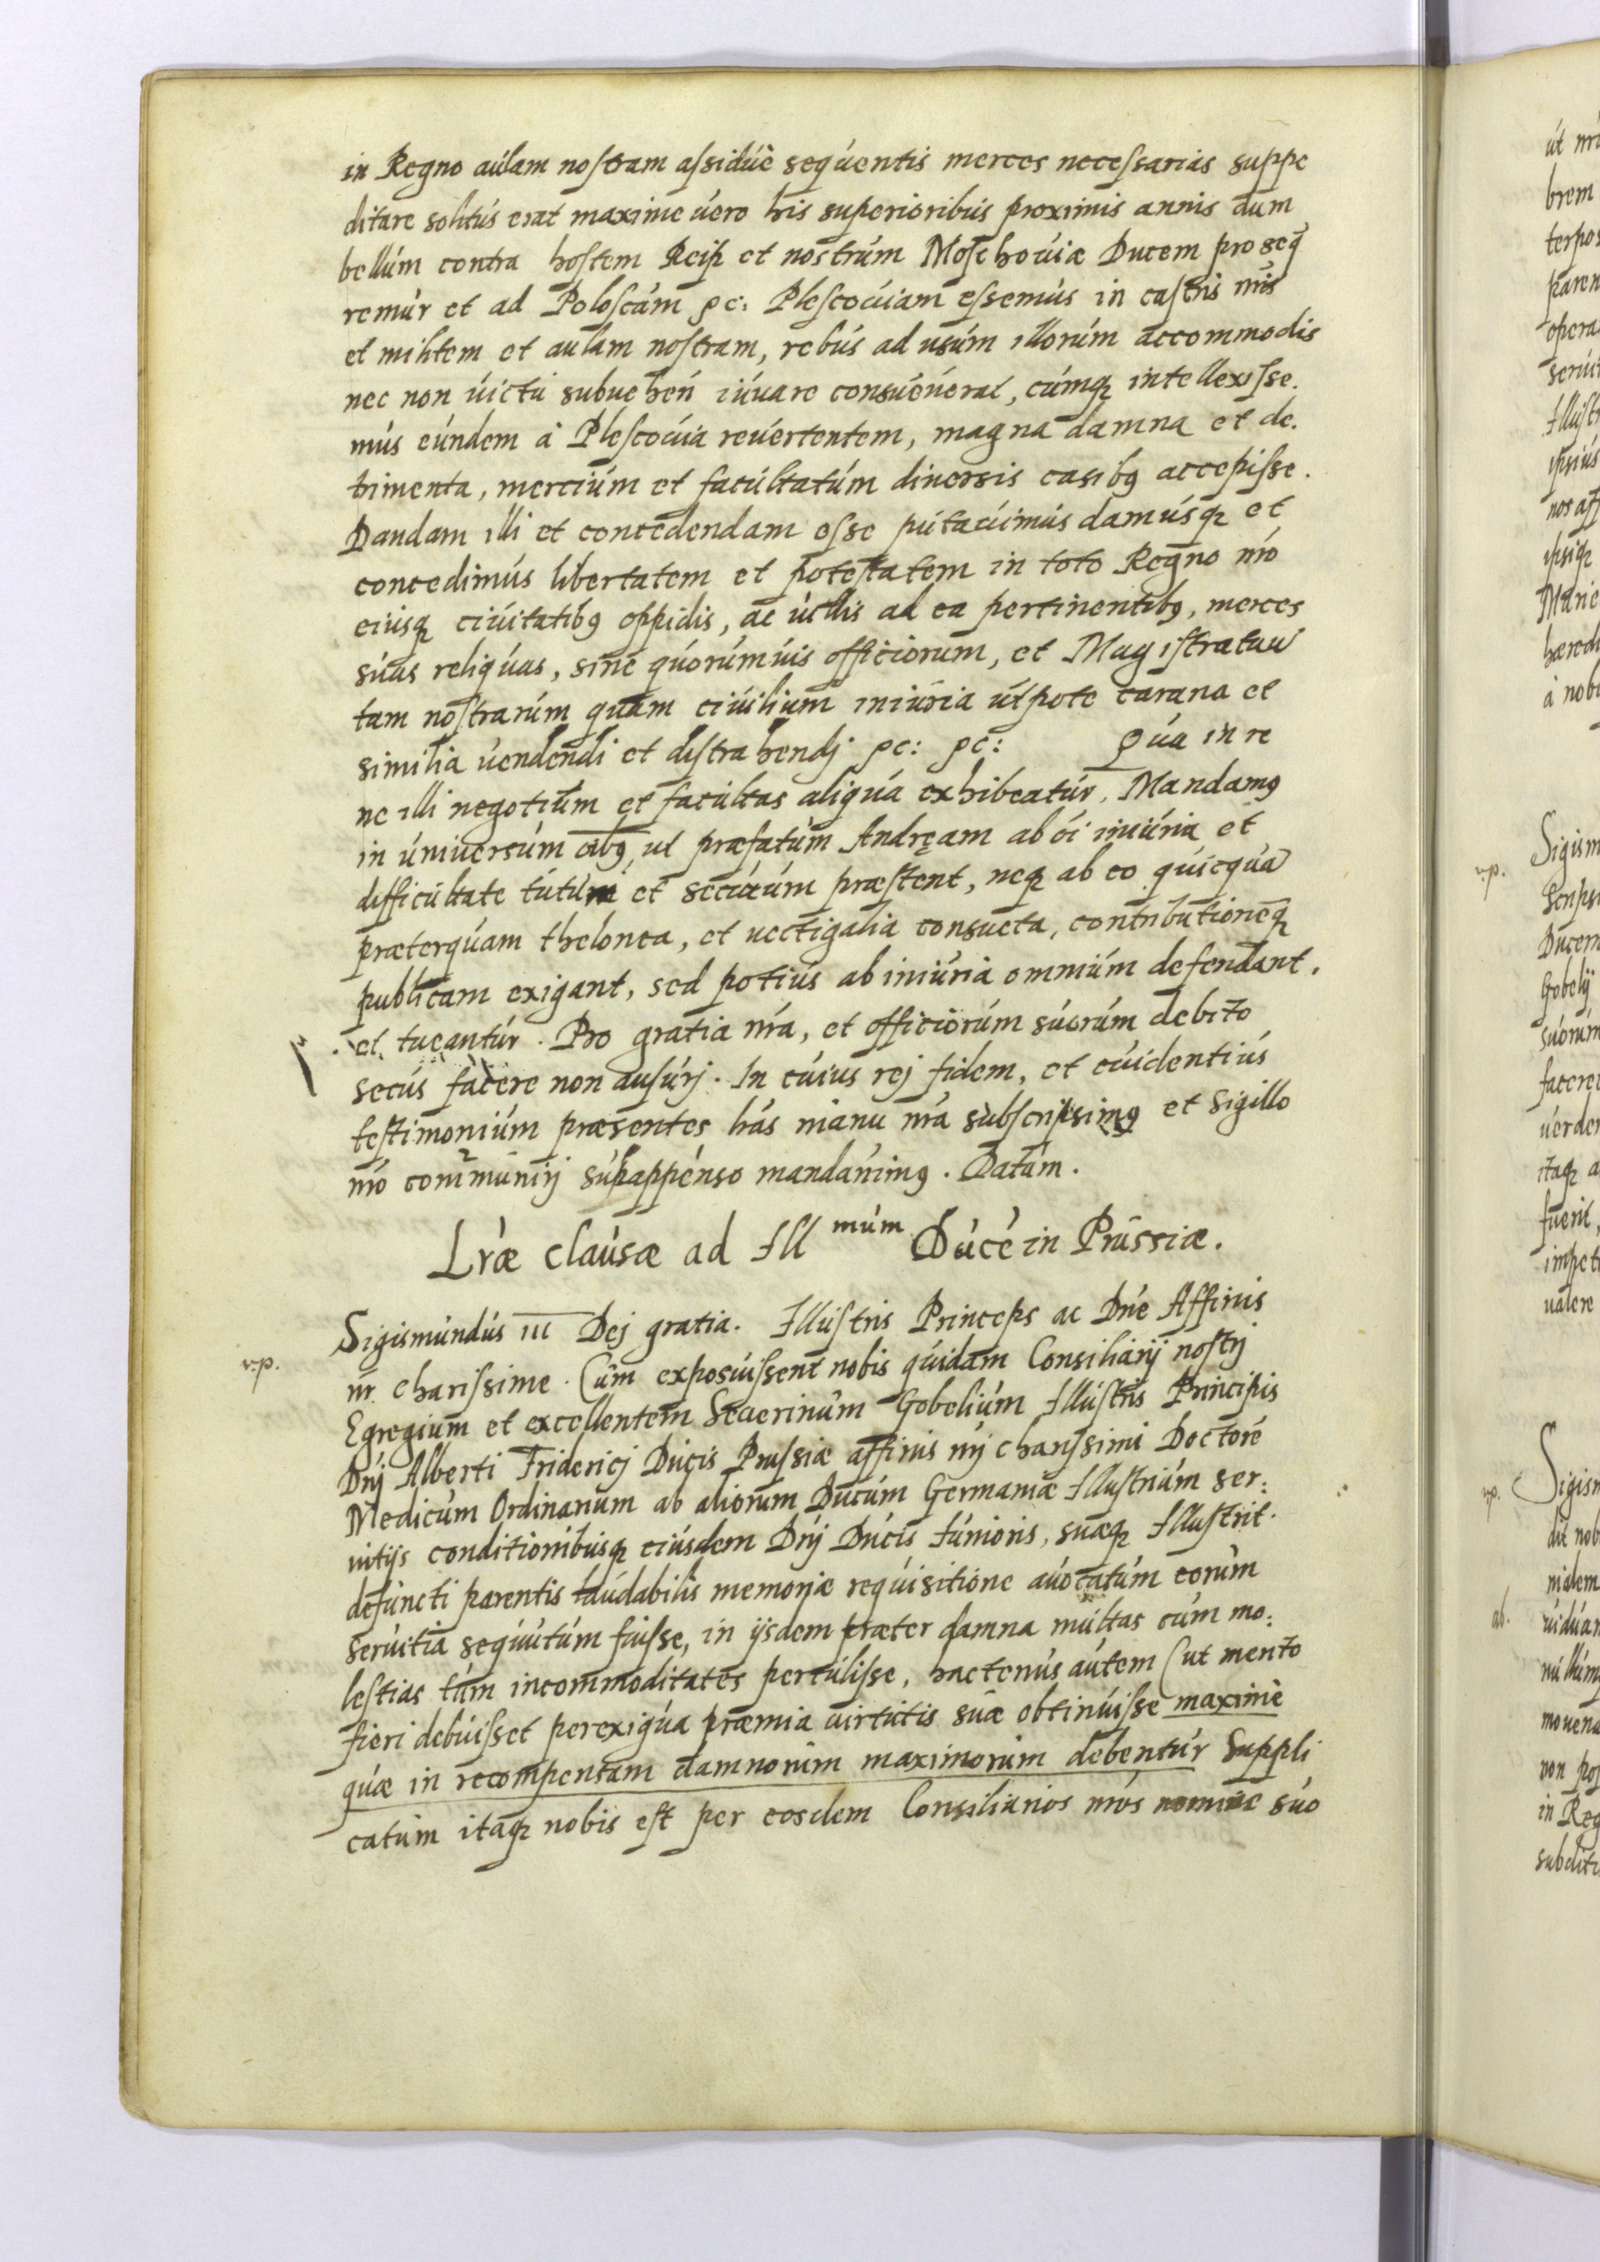 in Regno aulam nostram assiduè sequentis merces necessarias suppe
ditare solitus erat maxime vero his superioribus proximis annis dum
bellum contra hostem Reip et nostrum Moschoviæ Ducem proseq
remur et ad Poloscam &c: Plescoviam essemus in castris nris
et militem et aulam nostram, rebus ad usum illorum accommodis
nec non victu subvehen iuvare consueverat, cumq intellexisse.
mus eundem à Plescovia revertentem, magna damna et de.
trimenta, mercium et facultatum diversis casibꝯ accepisse.
Dandam illi et concedendam esse putavimus damusq et
concedimus libertatem et potestatem in toto Regno nro
eiusq civitatibꝯ oppidis, ac villis ad ea pertinentibꝯ, merces
suas reliquas, sine quorumvis officiorum, et Magistratuu
tam nostrarum quam civilium iniuria utpote carana et
similia vendendi et distrahendj &c: &c: Qua in re
ne illi negotium et facultas aliqua exhibeatur, Mandamꝯ
in universum oibꝯ, ut præfatum Andręam ab oi iniuria et
difficultate tutum et securum præstent, neq ab eo quicqua
præterquam thelonea, et vectigalia consueta, contributioneq
publicam exigant, sed potius ab iniuria omnium defendant,
et tueantur. Pro gratia nra, et officiorum suorum debito
secus facere non ausurj. In cuius rej fidem, et evidentius
testimonium præsentes has manu nra subscripsimꝯ et Sigillo
nro communirj subappenso mandavimꝯ. Datum.
Lræ clausæ ad Ill mum Ducē in Prussiæ.
Sigismundus III Dej gratia. Illustris Princeps ac Dne Affinis
v.p.
nr charissime. Cum exposuissent nobis quidam Consiliarij nostrj
Egregium et excellentem Severinum Gobelium Illustris Principis
Dnj Alberti Friderici Ducis Prussiæ affinis nrj charissimi Doctorē
Medicum Ordinarium ab aliorum Ducum Germaniæ Illustrium ser:
vitijs conditionibusq eiusdem Dnj Ducis Junioris, suæq Illustrit.
defuncti parentis laudabilis memoriæ requisitione avocatum eorum
servitia sequutum fuisse, in ijsdem præter damna multas cum mo:
lestias tum incommoditates pertulisse, hactenus autem (ut merito
fieri debuisset perexigua præmia virtutis suæ obtinuisse maximè
quæ in recompensam damnorum maximorum debentur Suppli
catum itaq nobis est per eosdem Consiliarios nros nomine suo